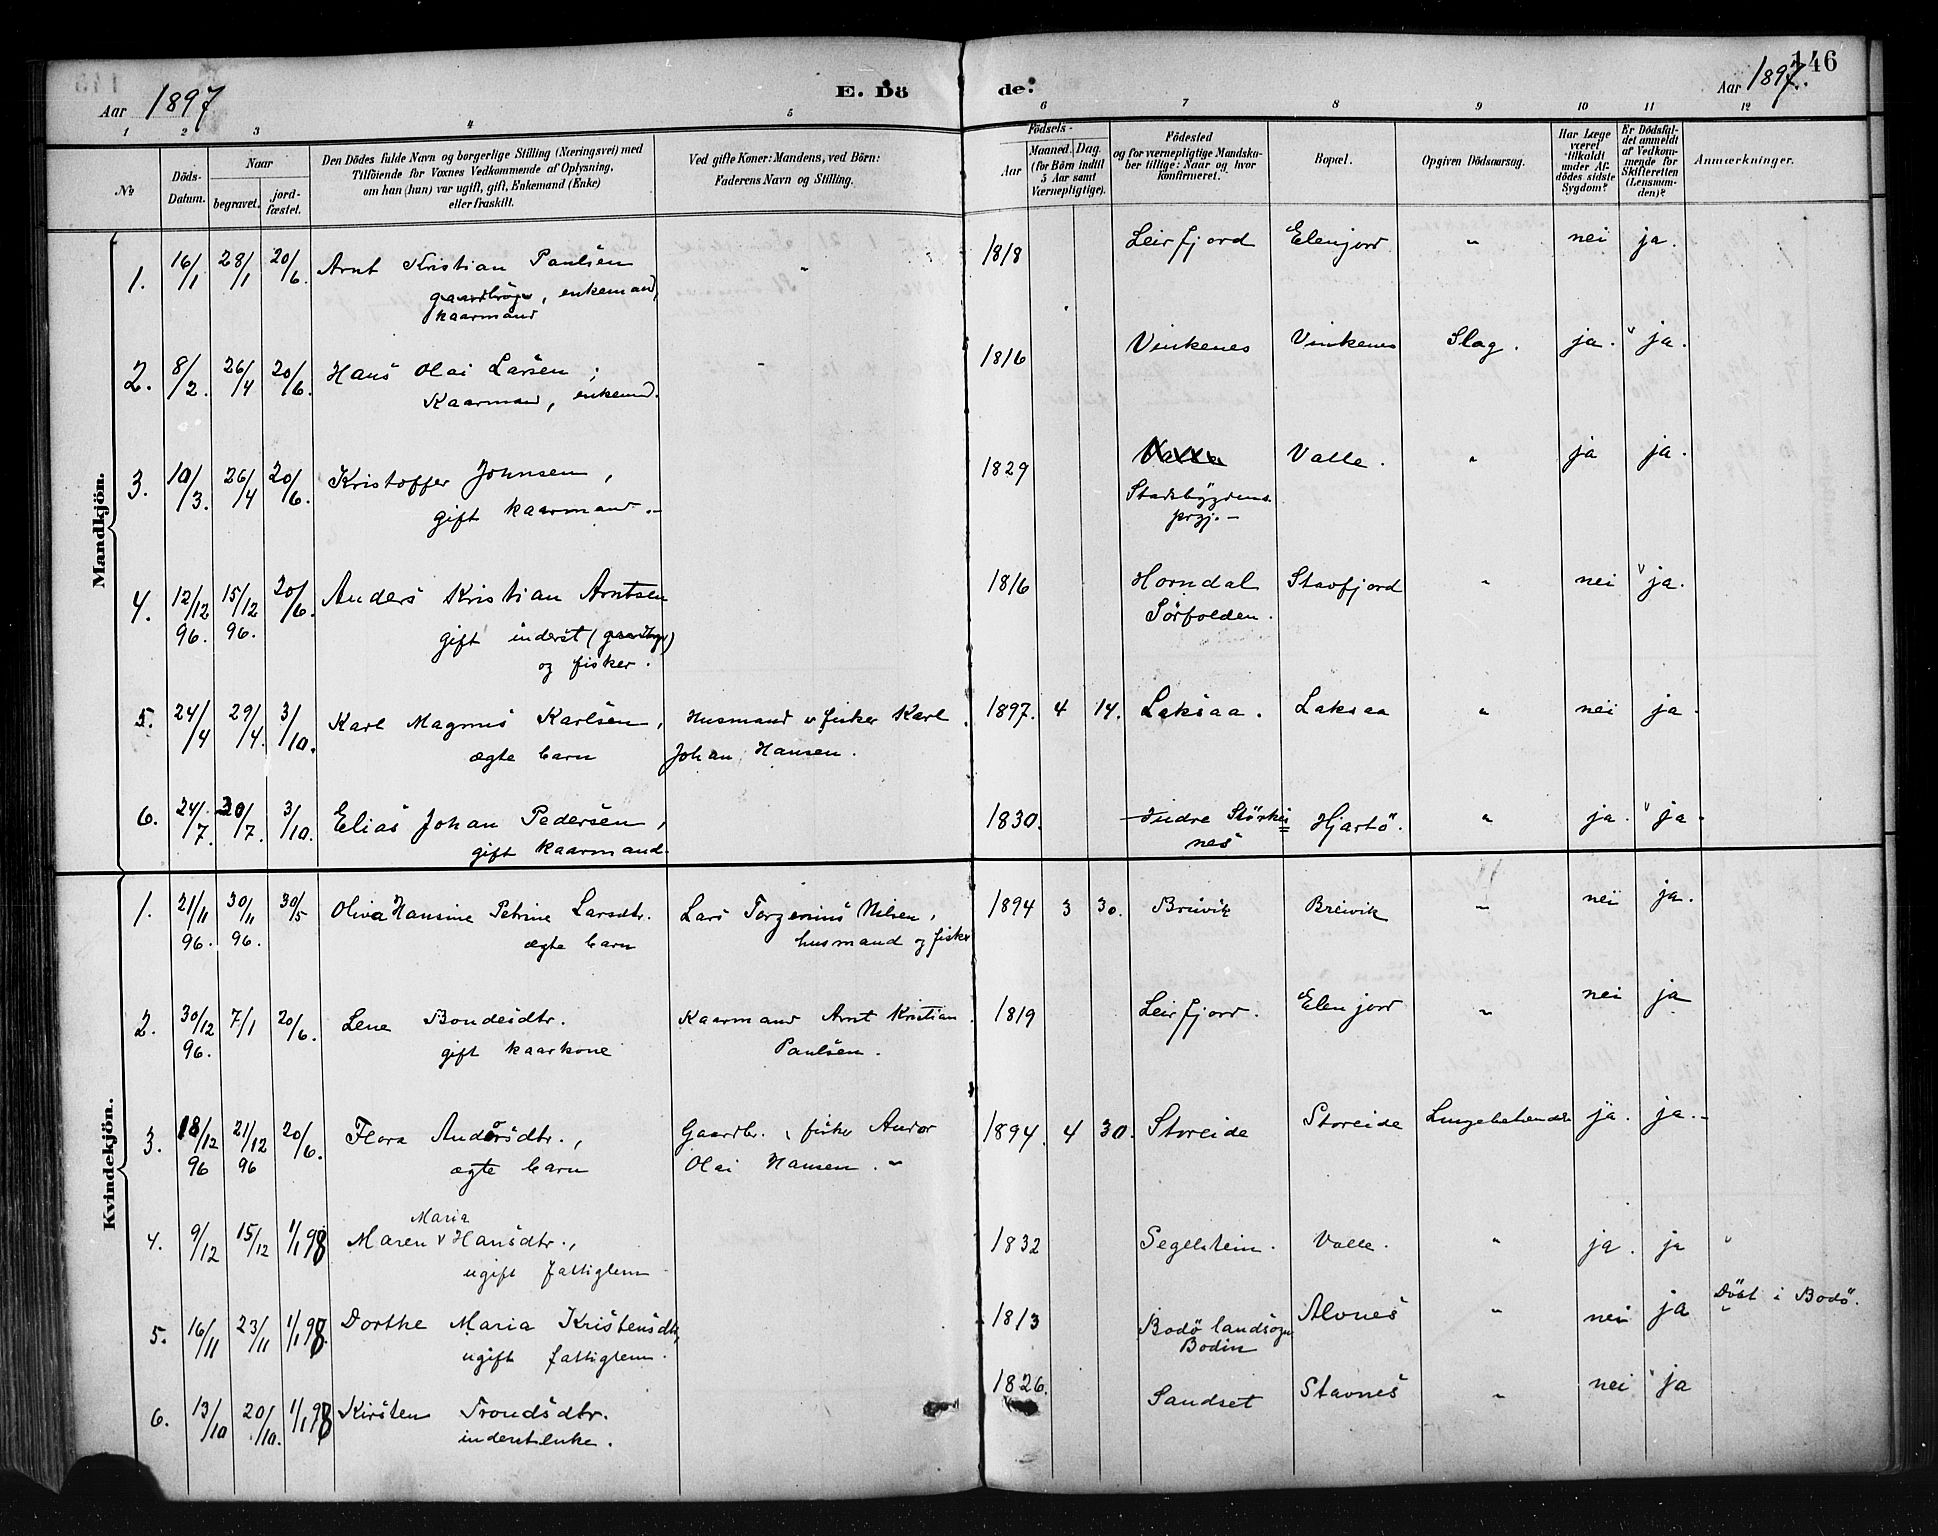 146
Aar 1897
E. Dö
de:
Aar 1897.
1 2 3 4 5 6 7 8 9 10 11 12
No
Döds-Datum.
Naar
begravet.
jord-fæstet.
Den Dödes fulde Navn og borgerlige Stilling (Næringsvei) med
Tilföiende for Voxnes Vedkommende af Oplysning,
om han (hun) var ugift, gift, Enkemand (Enke)
eller fraskilt.
Ved gifte Koner: Mandens, ved Börn:
Faderens Navn og Stilling.
Födsels-
Aar
Maaned. Dag.
(for Börn indtil
5 Aar samt
Værnepligtige).
Födested
og for værnepligtige Mandska-
ber tillige: Naar og hvor
Konfirmeret.
Bopæl.
Opgiven Dödsaarsag.
Har Læge
været
tilkaldt
under Af-
dödes sidste
Sygdom?
Er Dödsfal-
det anmeldt
af Vedkom-
mende for
Skifteretten
(Lensman-
den)?
Anmærkninger.
Mandkjön.
1. 16/1 28/1 20/6. Arnt Kristian Paulsen " 1818 Leirfjord Elenjord " nei ja.
gaardbrüger, enkemand,
kaarmand
2. 8/2. 26/4 20/6. Hans Olai Larsen, - 1816 Vinkenes Vinkenes Slag. ja. ja.
Kaarmand, enkem.
3. 10/3. 26/4 20/6. Kristoffer Johnsen, 1829 Valle. " ja ja.
gift kaarmand. Stadsbygdens
prgj. -
4. 12/12 96. 15/12 96. 20/6. Anders Kristian Arntsen 1816 Horndal Stavfjord " nei ja.
gift inderst (gaardbrgr) Sørfolden.
og fisker.
5. 24/4 29/4. 3/10. Karl Magnus Karlsen, Husmand v fisker Karl 1897. 4 14. Laksaa. Laksaa " nei ja.
ægte barn Johan Hansen.
6. 24/7. 30/7. 3/10. Elias Johan Pedersen, 1830. Indre Störkes= Hjartö. " ja. ja.
gift kaarmand. nes
Kvindekjön.
1. 21/11 96. 30/11 96. 30/5 Oliva Hansine Petrine Larsdtr. Lars Torgersius Nilsen, 1894 3 30. Breivik Breivik " nei ja.
ægte barn husmand og fisker
2. 30/12 96. 7/1 20/6. Lene Bondesdtr. Kaarmand Arnt Kristian 1819 Leirfjord. Elenjord " nei ja
gift kaarkone Paulsen.
3. 18/12 96 21/12 96 20/6. Flora Andorsdtr., Gaardbr. v fisker Andor 1894. 4 30. Storeide Storeide Lungebetændelse ja. ja.
ægte barn Olai Hansen. "
4. 9/12 15/12 1/1 98 Maren Maria Hansdtr., 1832 Segelstein. Valle. " ja. ja "
ugift fattiglem
5. 16/11 23/11 1/1 98. Dorthe Maria Kristensdtr, 1813 Bodö landsogn Alvnes " nei ja Döbt i Bodö.
ugift fattiglem. Bodin
6. 13/10 20/10. 1/1 98 Kirsten Trondsdtr. 1826. Sandset Stavnes " nei ja
inderstenke.